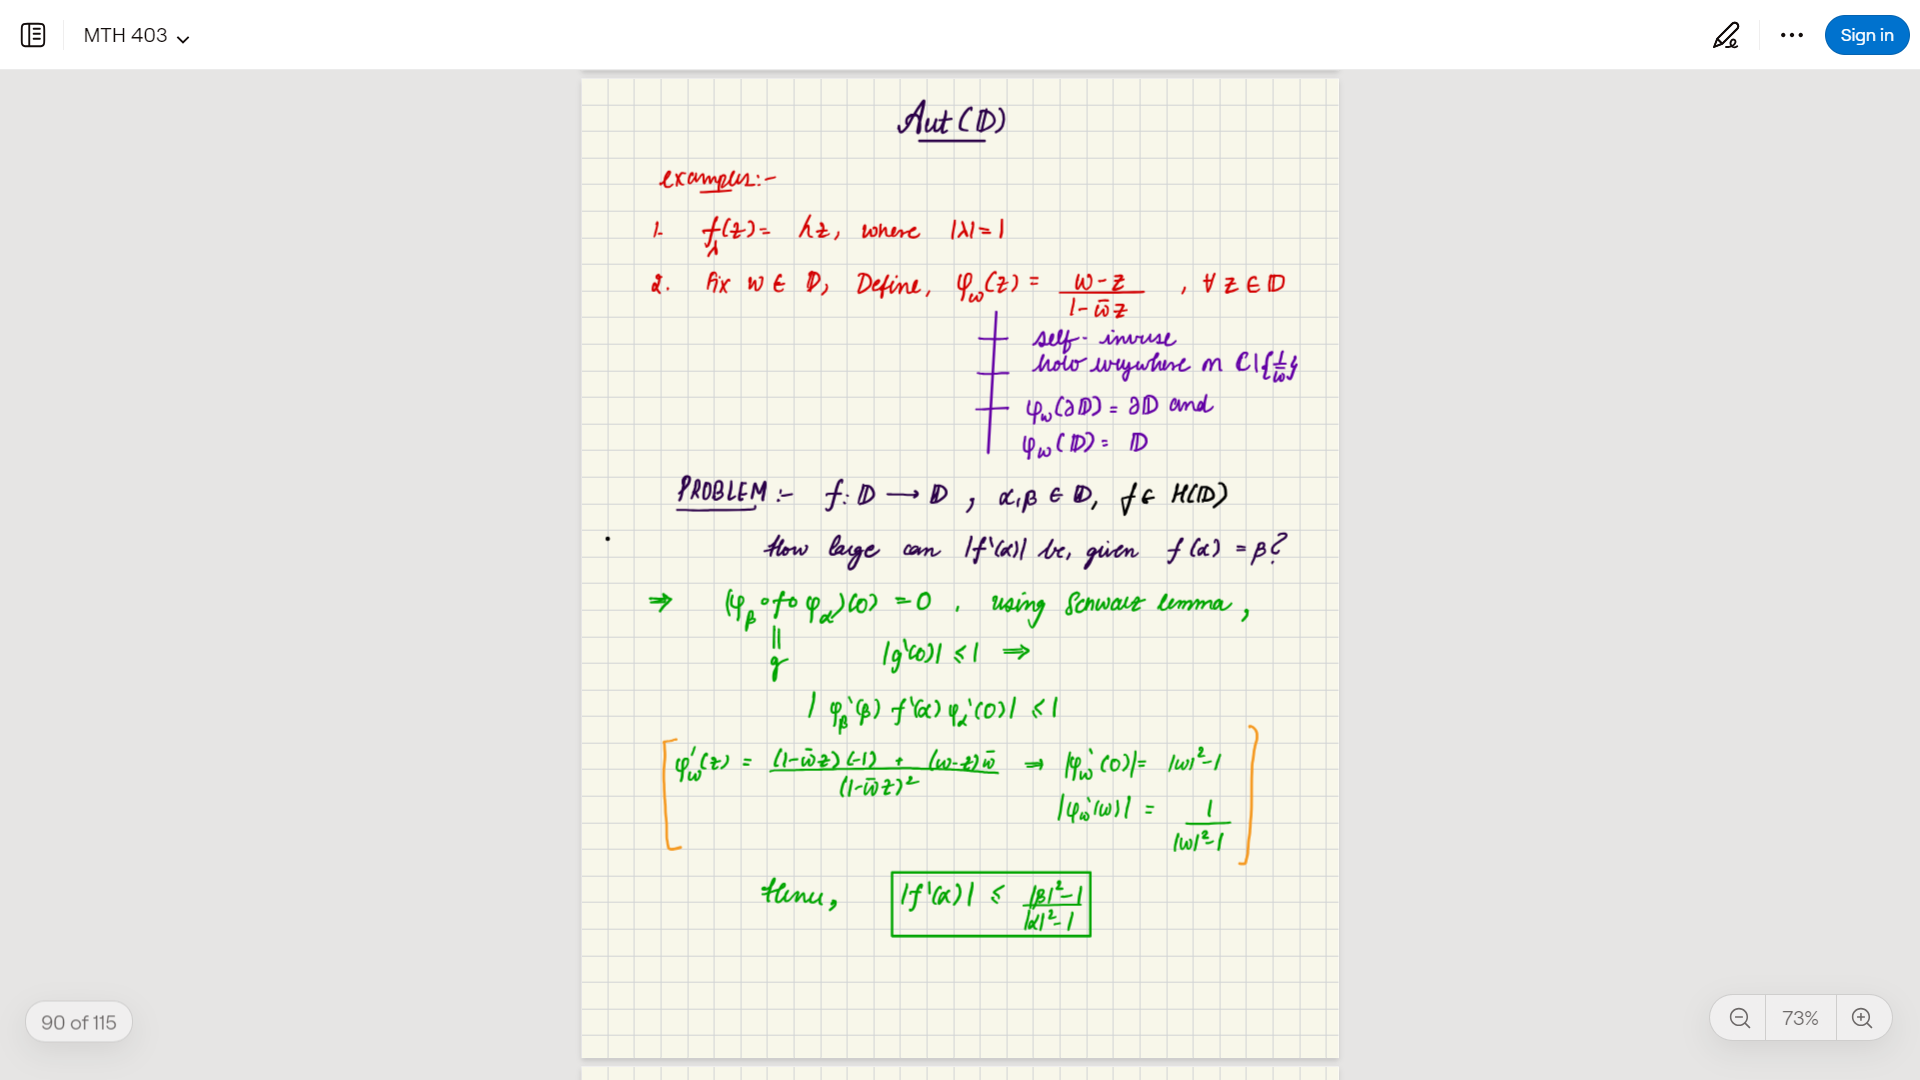 MTH 403
Sign in
Aut(𝔻)
examples:-
1. f_λ(z) = λz, where |λ|=1
2. Fix w ∈ 𝔻, Define, φ_w(z) = (w-z)/(1-w̄z) , ∀ z ∈ 𝔻
self-inverse
holo everywhere on ℂ\{1/w̄}
φ_w(∂𝔻) = ∂𝔻 and
φ_w(𝔻) = 𝔻
PROBLEM :- f: 𝔻 → 𝔻 , α,β ∈ 𝔻, f ∈ H(𝔻)
How large can |f'(α)| be, given f(α) = β?
⇒ (φ_β∘f∘φ_α)(0) = 0 . using Schwarz lemma,
||
g |g'(0)| ≤ 1 ⇒
| φ_β'(β) f'(α) φ_α'(0)| ≤ 1
[φ_w'(z) = ((1-w̄z)(-1) + (w-z)w̄)/(1-w̄z)² → |φ_w'(0)| = |w|²-1
|φ_w'(w)| = 1/(|w|²-1)]
Hence, |f'(α)| ≤ (|β|²-1)/(|α|²-1)
90 of 115
73%